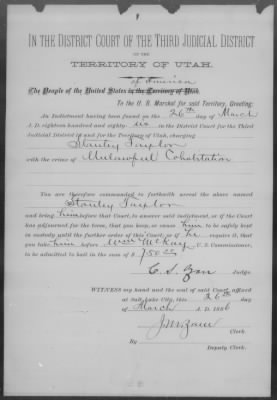 IN THE DISTRICT COURT OF THE THIRD JUDICIAL DISTRICT
OF THE
TERRITORY OF UTAH.
of America
The People of the United States in the Territory of Utah,
To the U. S. Marshal for said Territory, Greeting:
An Indictment having been found on the 26th day of March
A. D. eighteen hundred and eighty six in the District Court for the Third
Judicial District in and for the Territory of Utah, charging
Stanley Taylor
with the crime of Unlawful Cohabitation
You are therefore commanded to forthwith arrest the above named
Stanley Taylor
and bring him before that Court, to answer said indictment, or if the Court
has adjourned for the term, that you keep, or cause him to be safely kept
in custody until the further order of this Court, or if he require it, that
you take him before Wm McKay U. S. Commissioner,
to be admitted to bail in the sum of $
C. S. Zane Judge.
WITNESS my hand and the seal of said Court affixed
at Salt Lake City, this 26th day
of March A. D. 1886
Clerk.
By
Deputy Clerk.